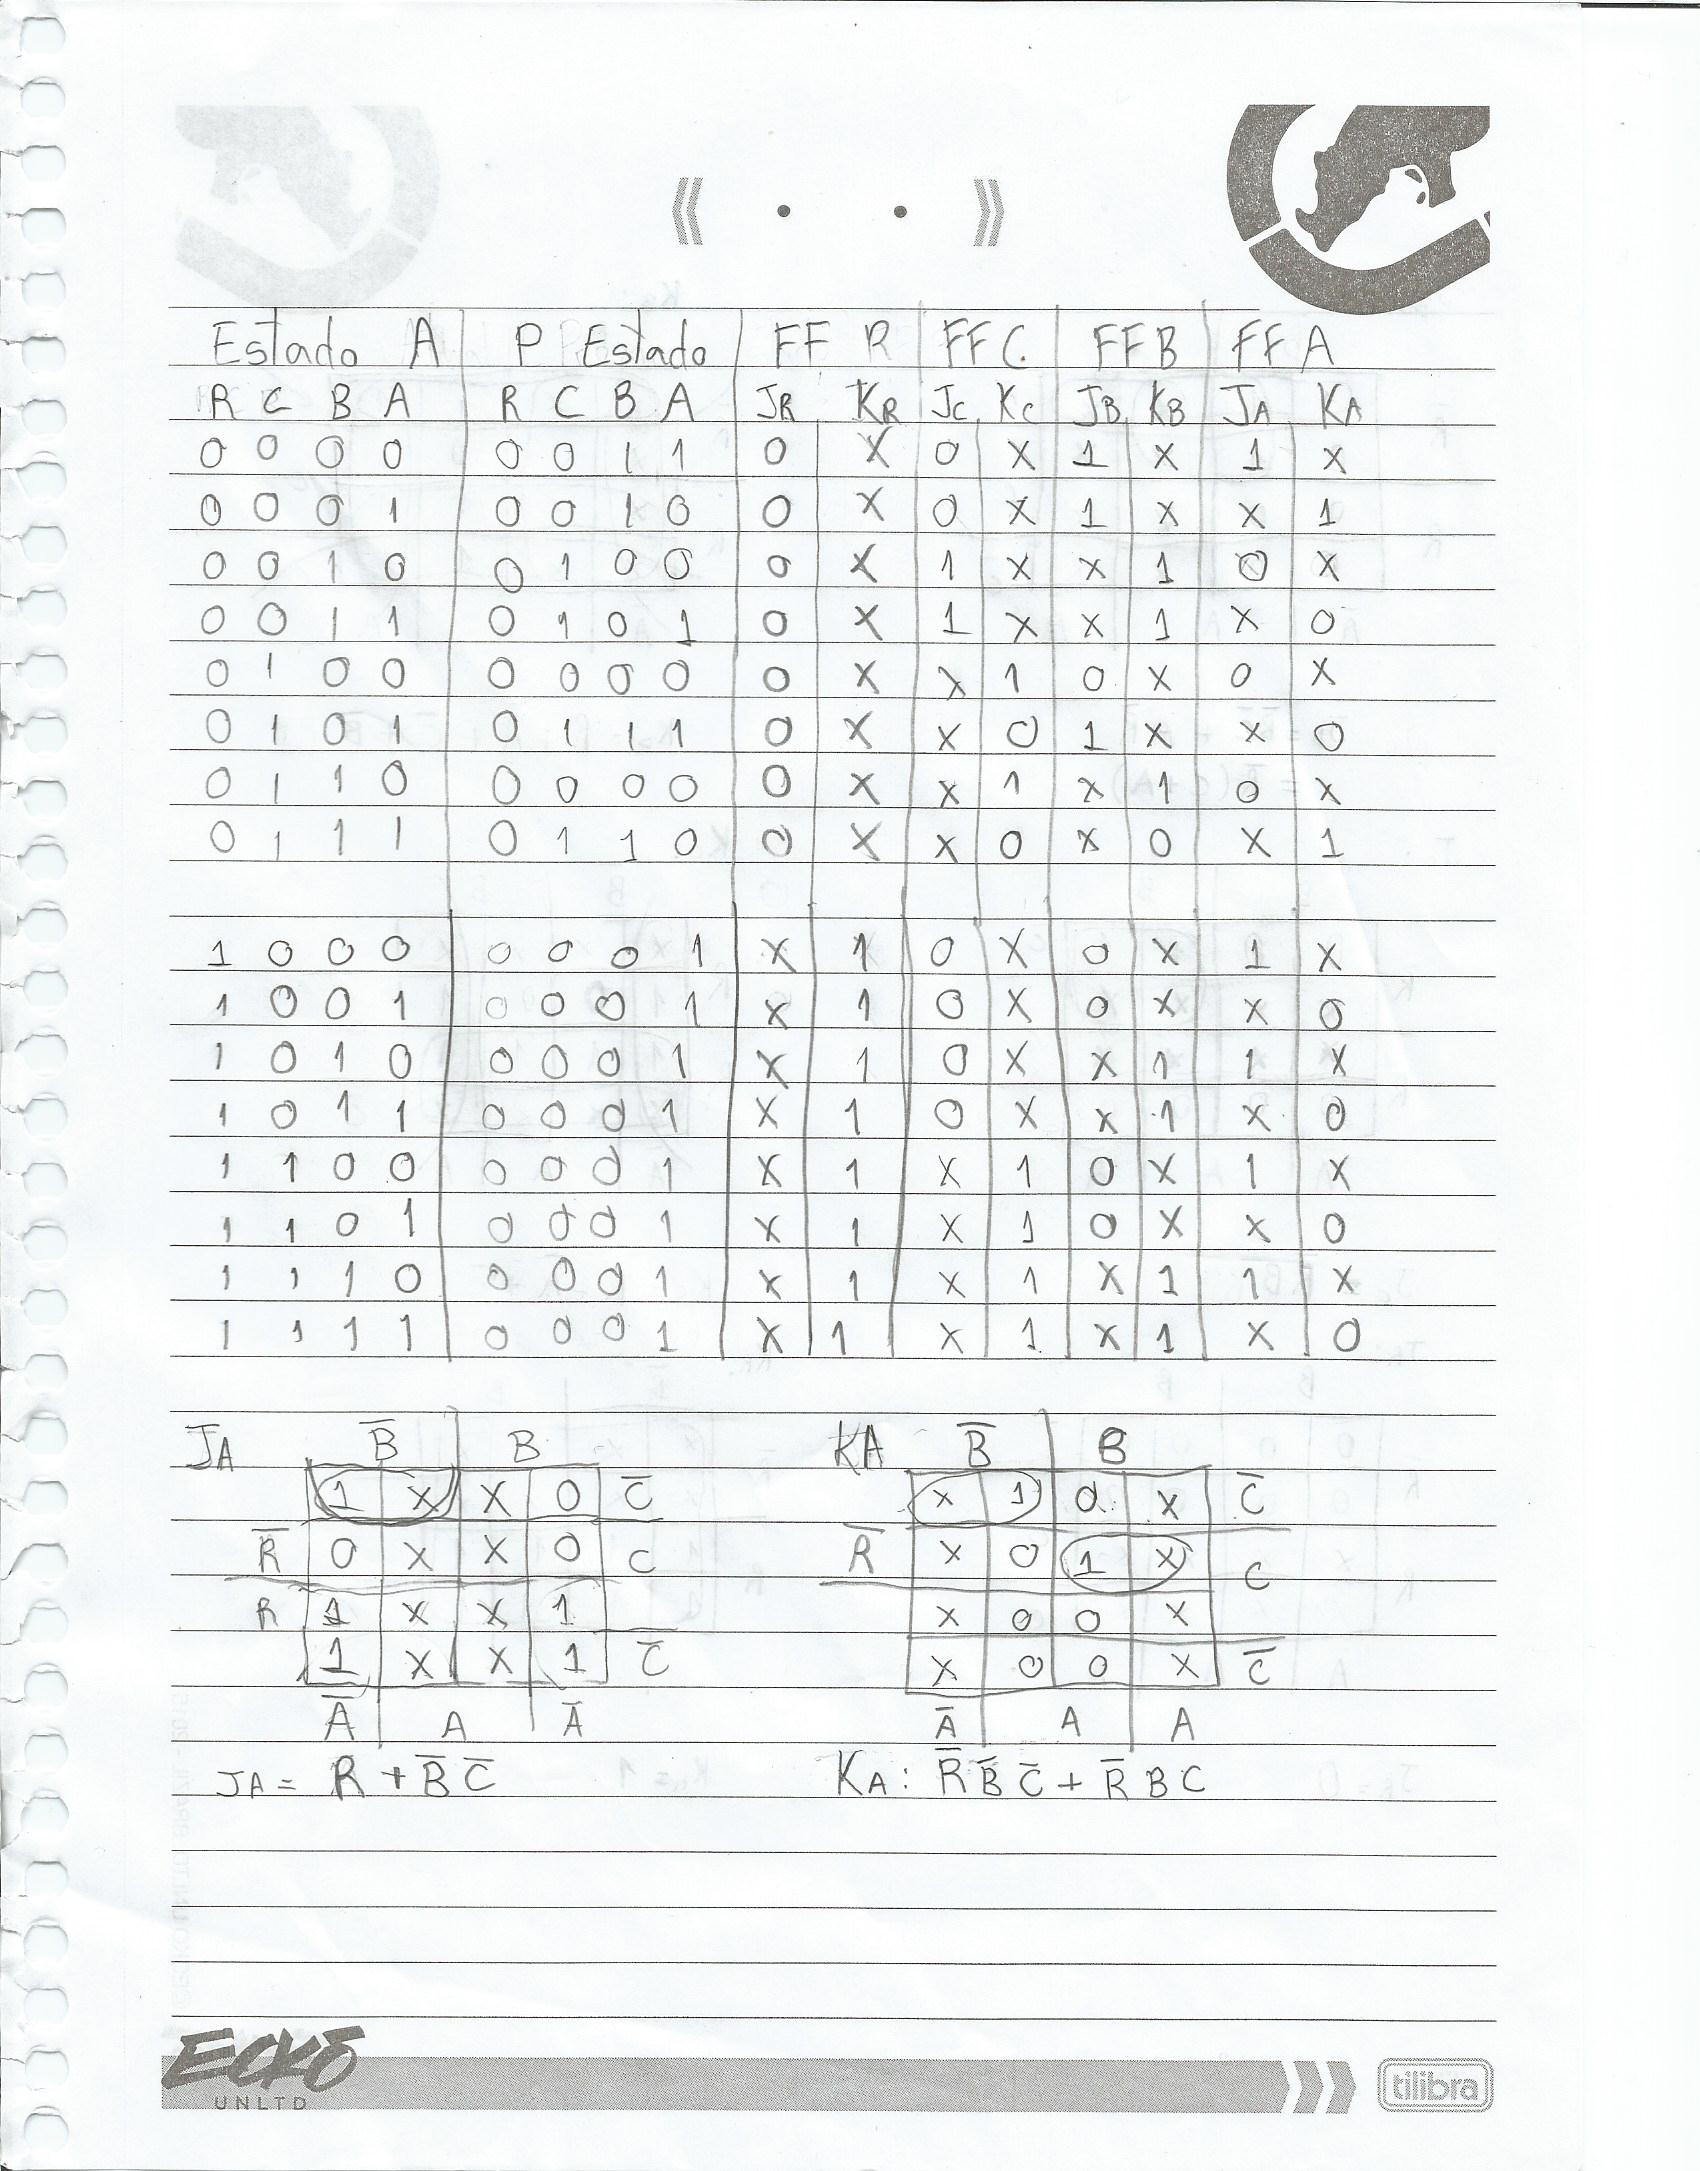 Estado A P Estado FF R FF C FF B FF A
R C B A R C B A JR KR JC KC JB KB JA KA
0 0 0 0 0 0 1 1 0 X 0 X 1 X 1 X
0 0 0 1 0 0 1 0 0 X 0 X 1 X X 1
0 0 1 0 0 1 0 0 0 X 1 X X 1 0 X
0 0 1 1 0 1 0 1 0 X 1 X X 1 X 0
0 1 0 0 0 0 0 0 0 X X 1 0 X 0 X
0 1 0 1 0 1 1 1 0 X X 0 1 X X 0
0 1 1 0 0 0 0 0 0 X X 1 X 1 0 X
0 1 1 1 0 1 1 0 0 X X 0 X 0 X 1
1 0 0 0 0 0 0 1 X 1 0 X 0 X 1 X
1 0 0 1 0 0 0 1 X 1 0 X 0 X X 0
1 0 1 0 0 0 0 1 X 1 0 X X 1 1 X
1 0 1 1 0 0 0 1 X 1 0 X X 1 X 0
1 1 0 0 0 0 0 1 X 1 X 1 0 X 1 X
1 1 0 1 0 0 0 1 X 1 X 1 0 X X 0
1 1 1 0 0 0 0 1 X 1 X 1 X 1 1 X
1 1 1 1 0 0 0 1 X 1 X 1 X 1 X 0
JA B̅ B KA B̅ B
1 X X 0 C̅ X 1 0 X C̅
R̅ 0 X X 0 C R̅ X 0 1 X C
R 1 X X 1 X 0 0 X
1 X X 1 C̅ X 0 0 X C̅
A̅ A A̅ A̅ A A
JA = R + B̅ C̅ KA : R̅ B̅ C̅ + R̅ B C
ECKŌ
UNLTD
tilibra